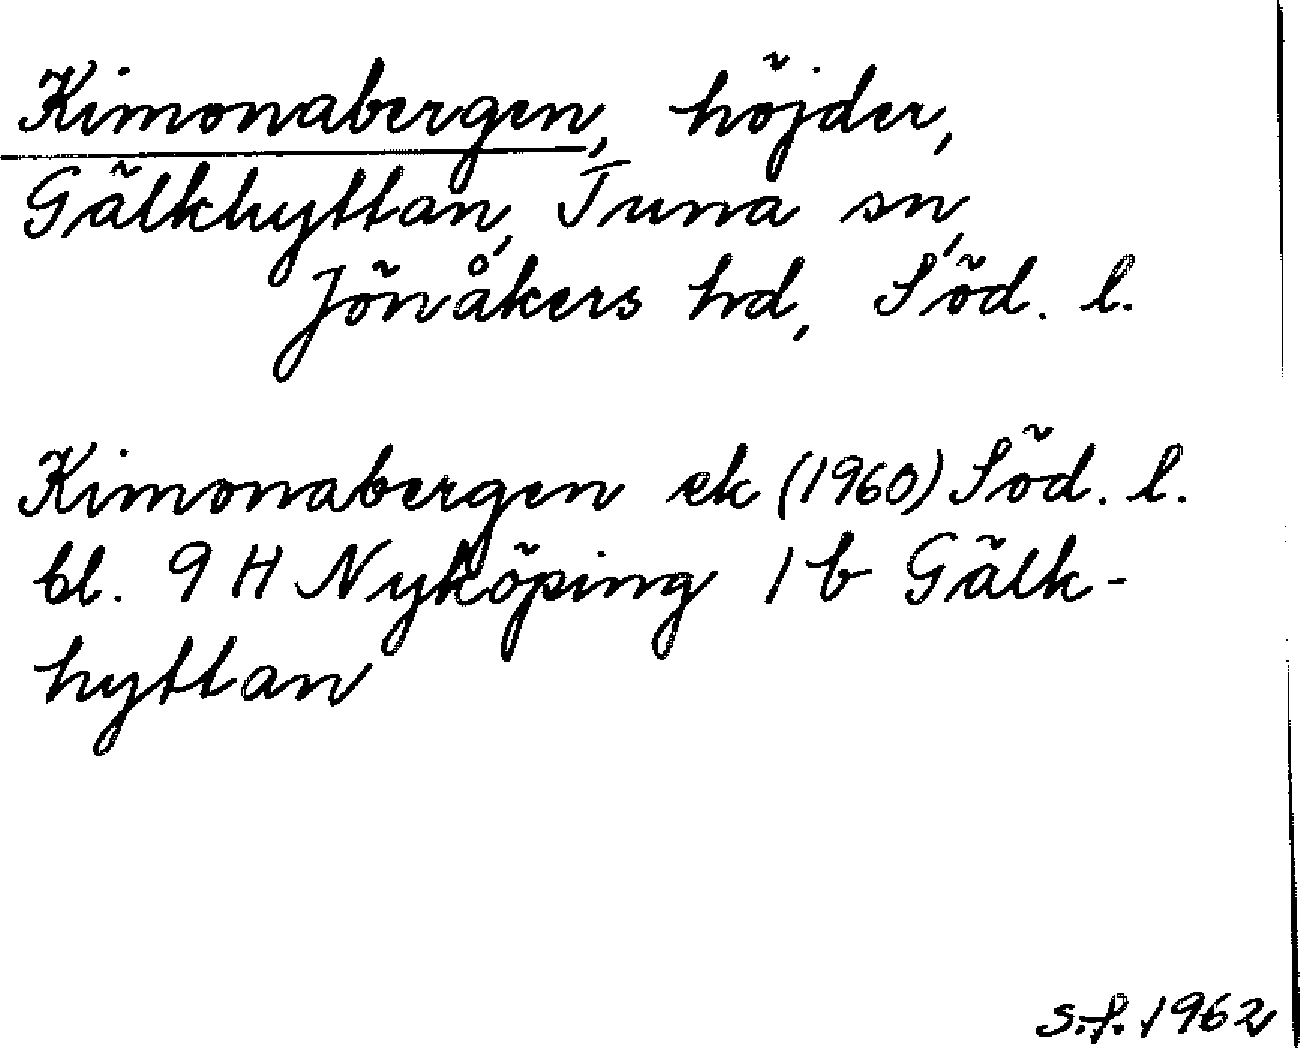 Kimonabergen, höjder,
Gälkhyttan, Tuna sn,
Jönåkers hd, Söd. l.
Kimonabergen ek (1960) Söd. l.
bl. 9 H Nyköping 1 b Gälk-
hyttan
s.f. 1962